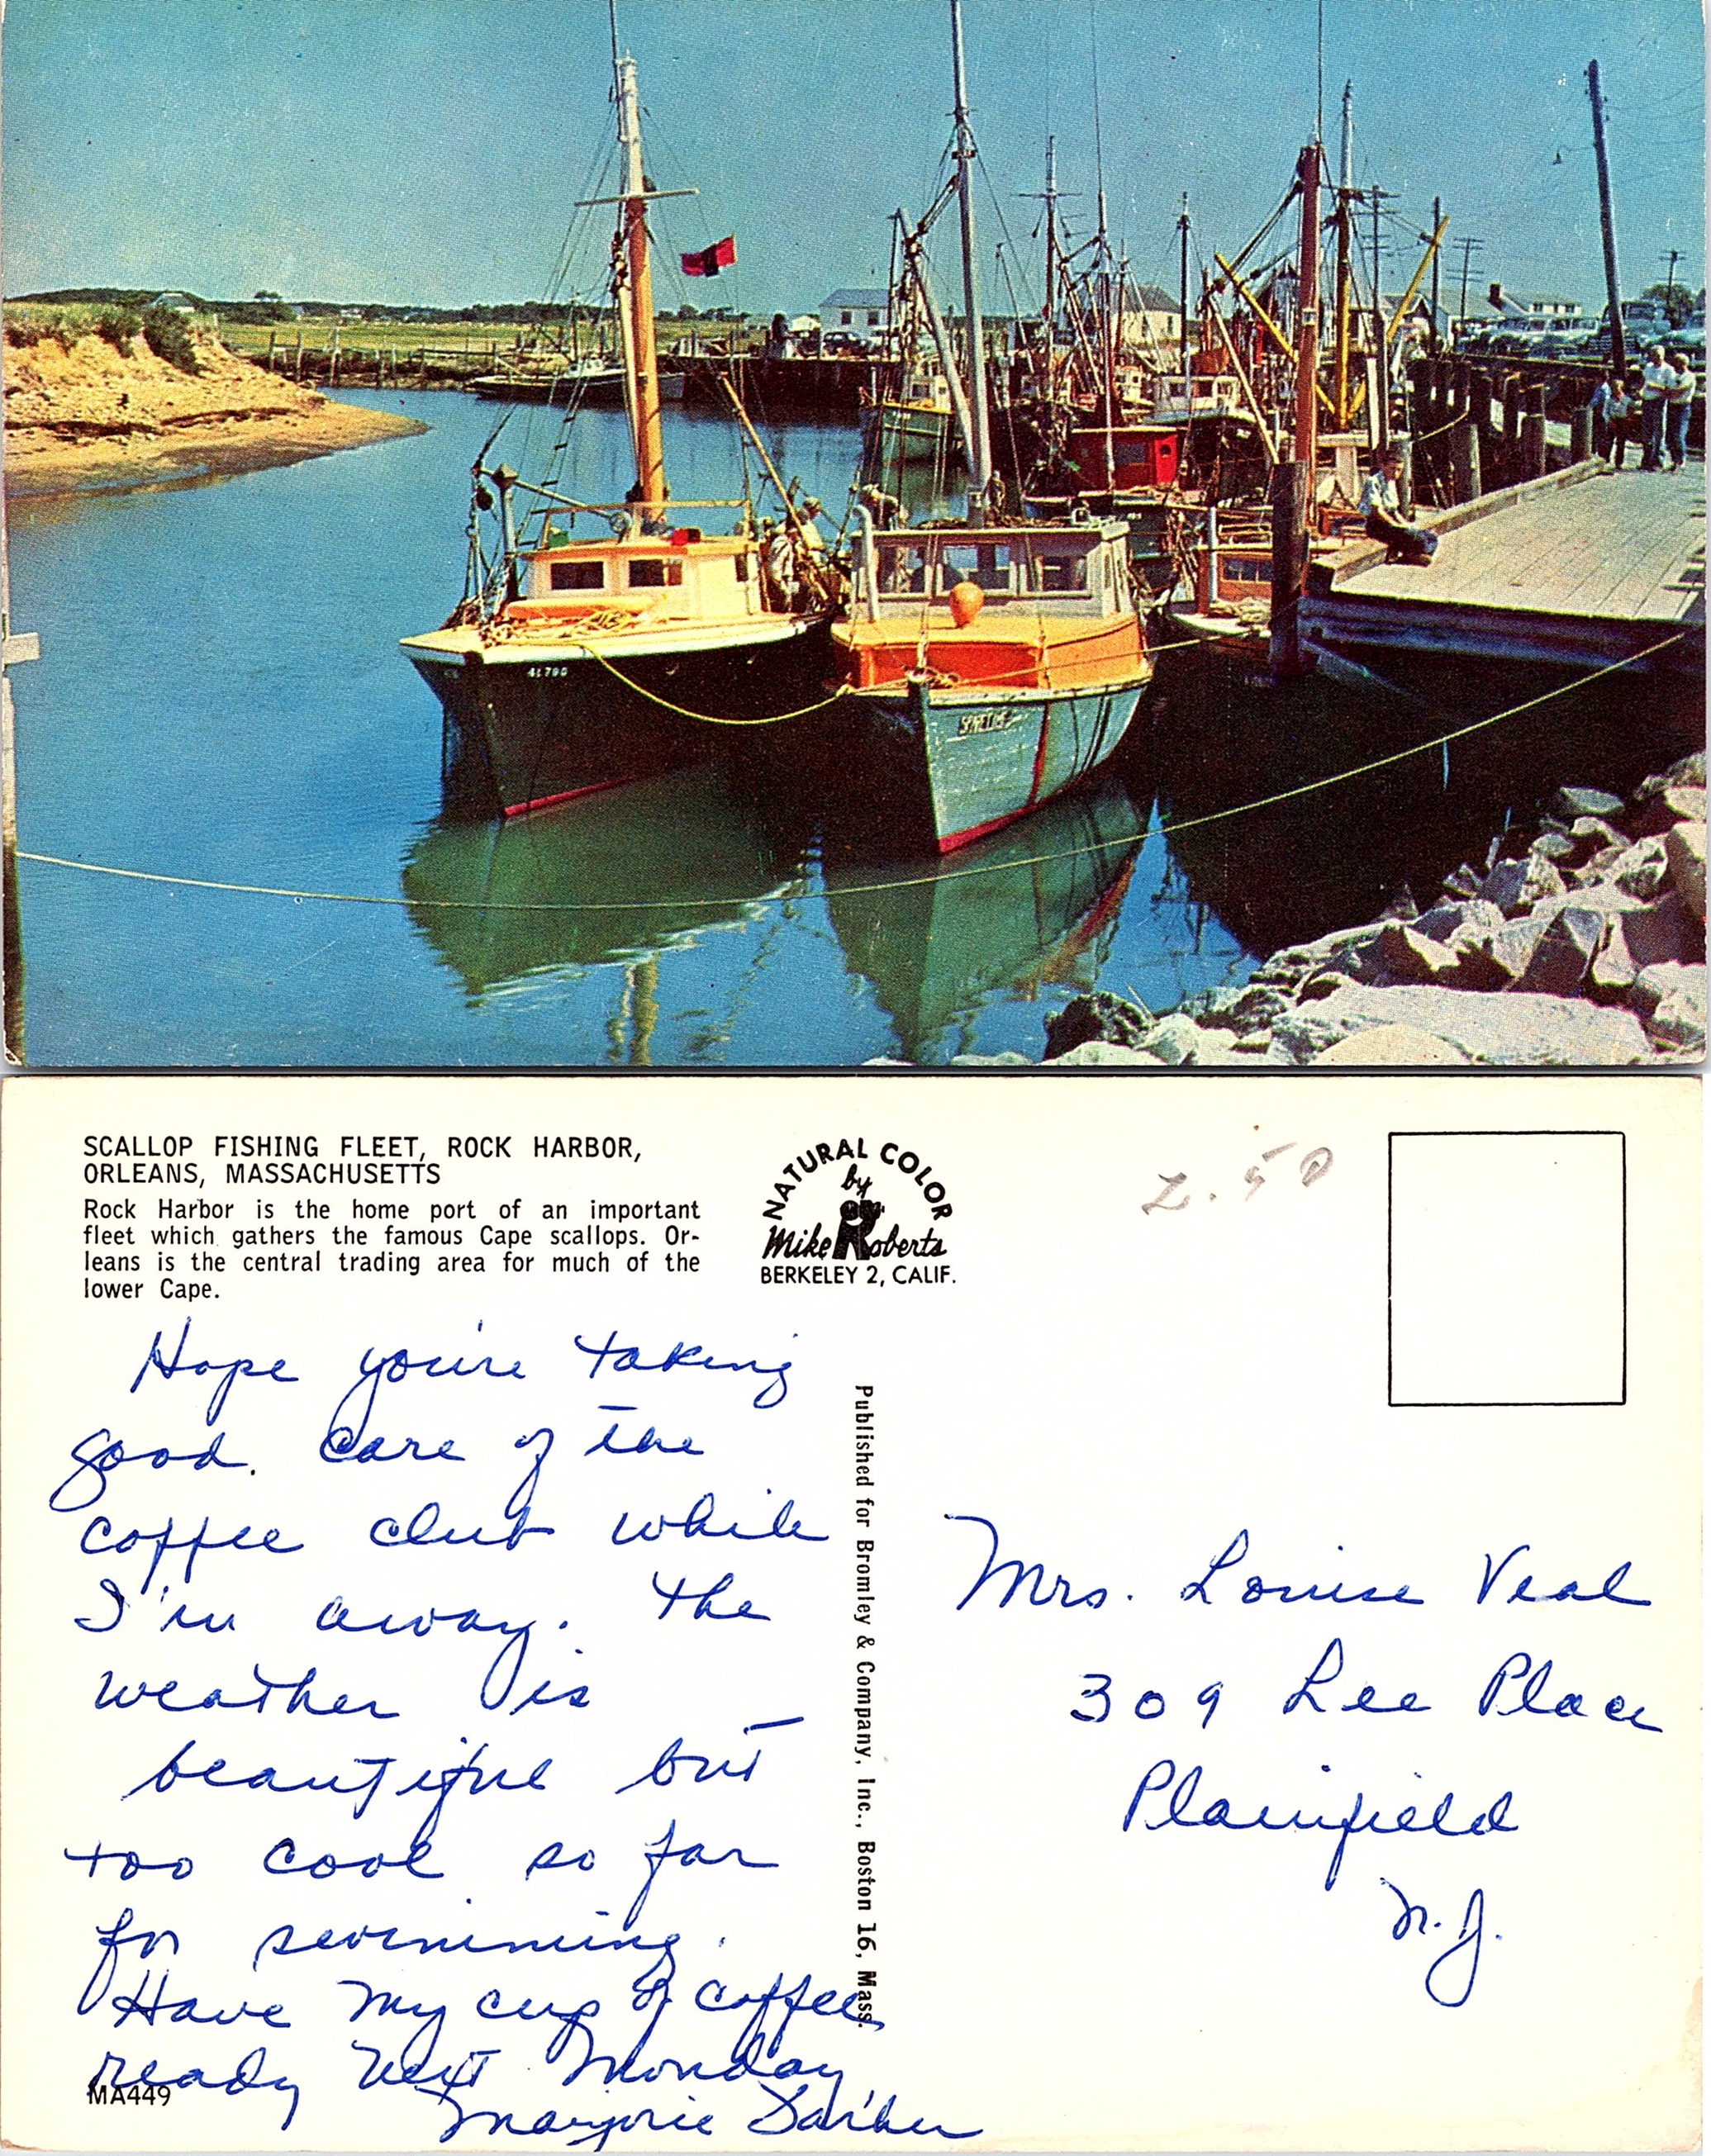 4L790
SCALLOP FISHING FLEET, ROCK HARBOR,
ORLEANS, MASSACHUSETTS
Rock Harbor is the home port of an important
fleet which gathers the famous Cape scallops. Or-
leans is the central trading area for much of the
lower Cape.
NATURAL COLOR
by
Mike Roberts
BERKELEY 2, CALIF.
2.50
Hope you're taking
good care of the
coffee club while
I'm away. The
weather is
beautiful but
too cool so far
for swimming.
Have my cup of coffee
ready next Monday,
Marjorie
MA449
Published for Bromley & Company, Inc., Boston 16, Mass.
Mrs. Louise Veal
309 Lee Place
Plainfield
N.J.